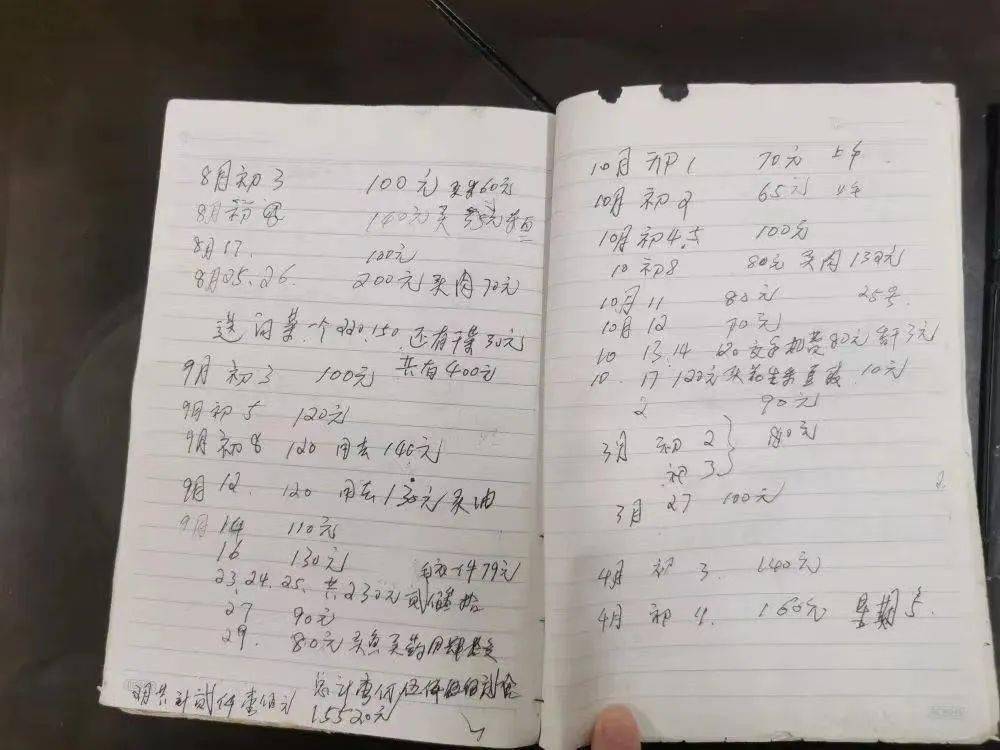 8月初3 100元 买米60元
8月初 140元买
8月17. 100元
8月25、26. 200元买肉70元
送 一个 220.150.还有 30元
共有400元
9月初3 100元
9月初5 120元
9月初8 120 用去140元
9月12. 120 用去130元买油
9月14 110元
16 130元
毛衣一件79元
23.24.25.共230元
27 90元
29. 80元买鱼买药用
月共计贰仟壹佰元
总计壹
15520元
10月初1 70元 上午
10月初2 65元
10月初4.5 100元
10初8 80元买肉132元
10月11 80元 25号
10月12 70元
10 13.14 交手机费80元 3元
10.17 120元买花生米豆 10元
2 90元
3月初2
初3 180元
3月27 100元
4月初3. 140元
4月初4. 160元 星期5.